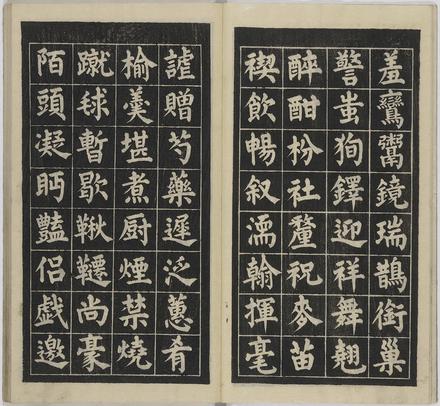 羞鸞鬻鏡瑞鵲銜巢
警蚩狗鐸迎祥舞翹
醉酣枌社釐祝麥苗
禊飲暢叙濡翰揮毫
謔贈芍藥遲泛蕙肴
榆羹堪煮厨煙禁燒
蹴毬暫歇鞦韆尚豪
陌頭凝眄豔侶戲邀